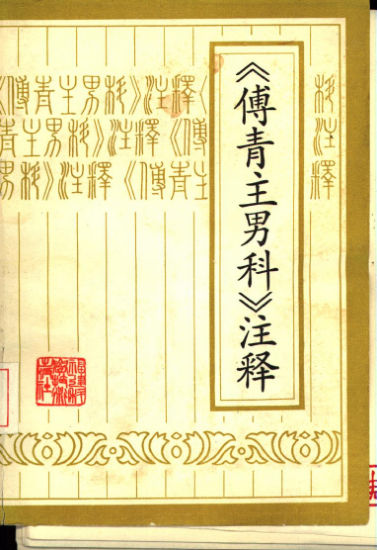 《傅青主男科》注释
《傅青主男科》注釋《 科
青主男科》注釋《傅 注
男科》注釋《傅青主 釋